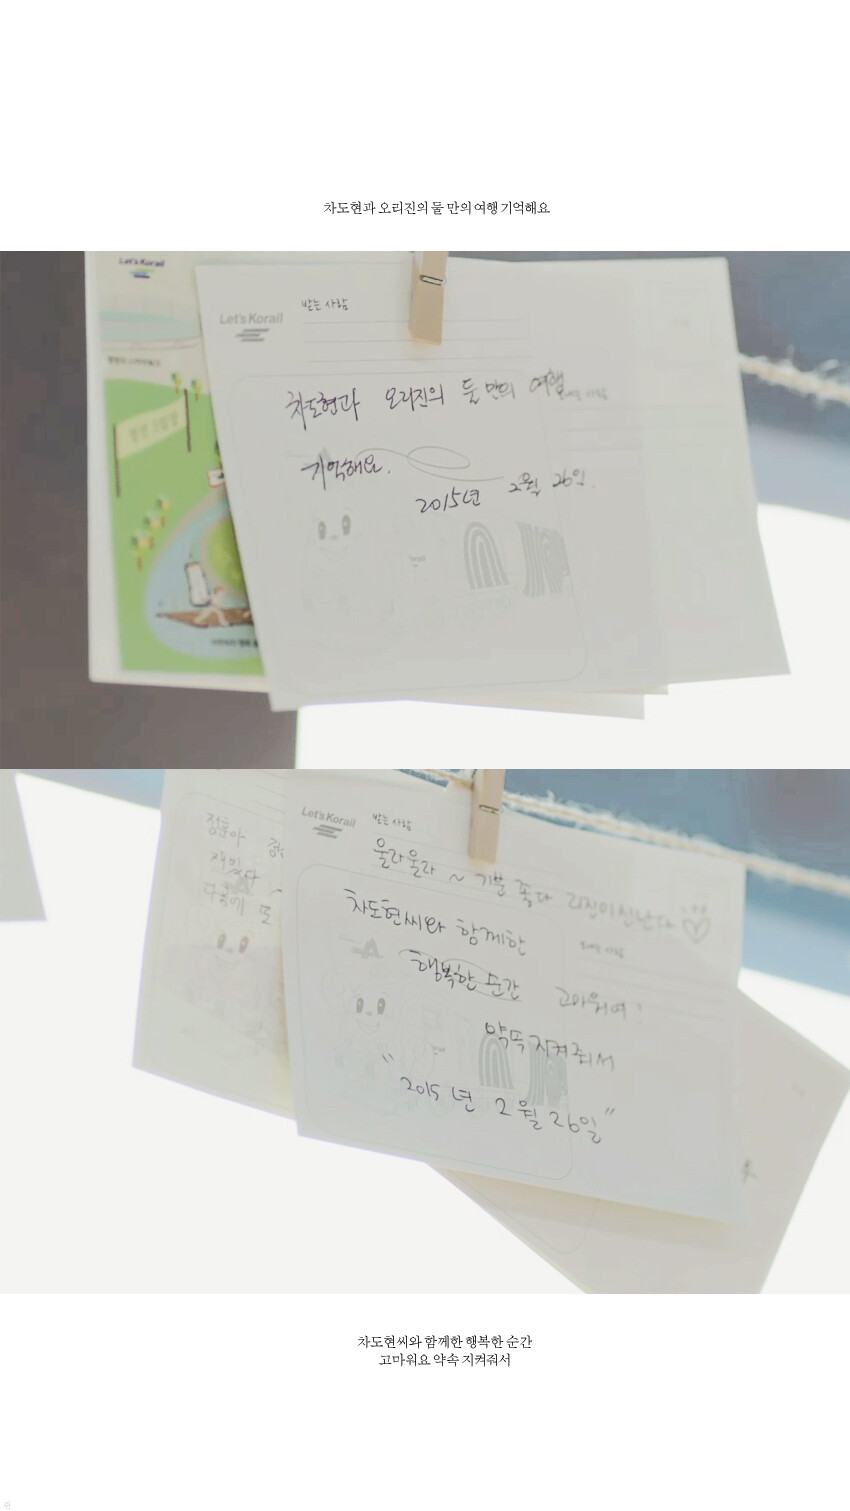 차도현과 오리진의 둘 만의 여행 기억해요
Let's Korail
Let's Korail
받는 사람
차도현과 오리진의 둘 만의 여행
기억해요.
2015년 2월 26일.
Let's Korail
받는 사람
울라울라 ~ 기분 좋다 리진이 신난다 ♡
차도현씨와 함께한
행복한 순간 고마워여!
약똑 지켜줘서
"2015년 2월 26일"
차도현씨와 함께한 행복한 순간
고마워요 약속 지켜줘서